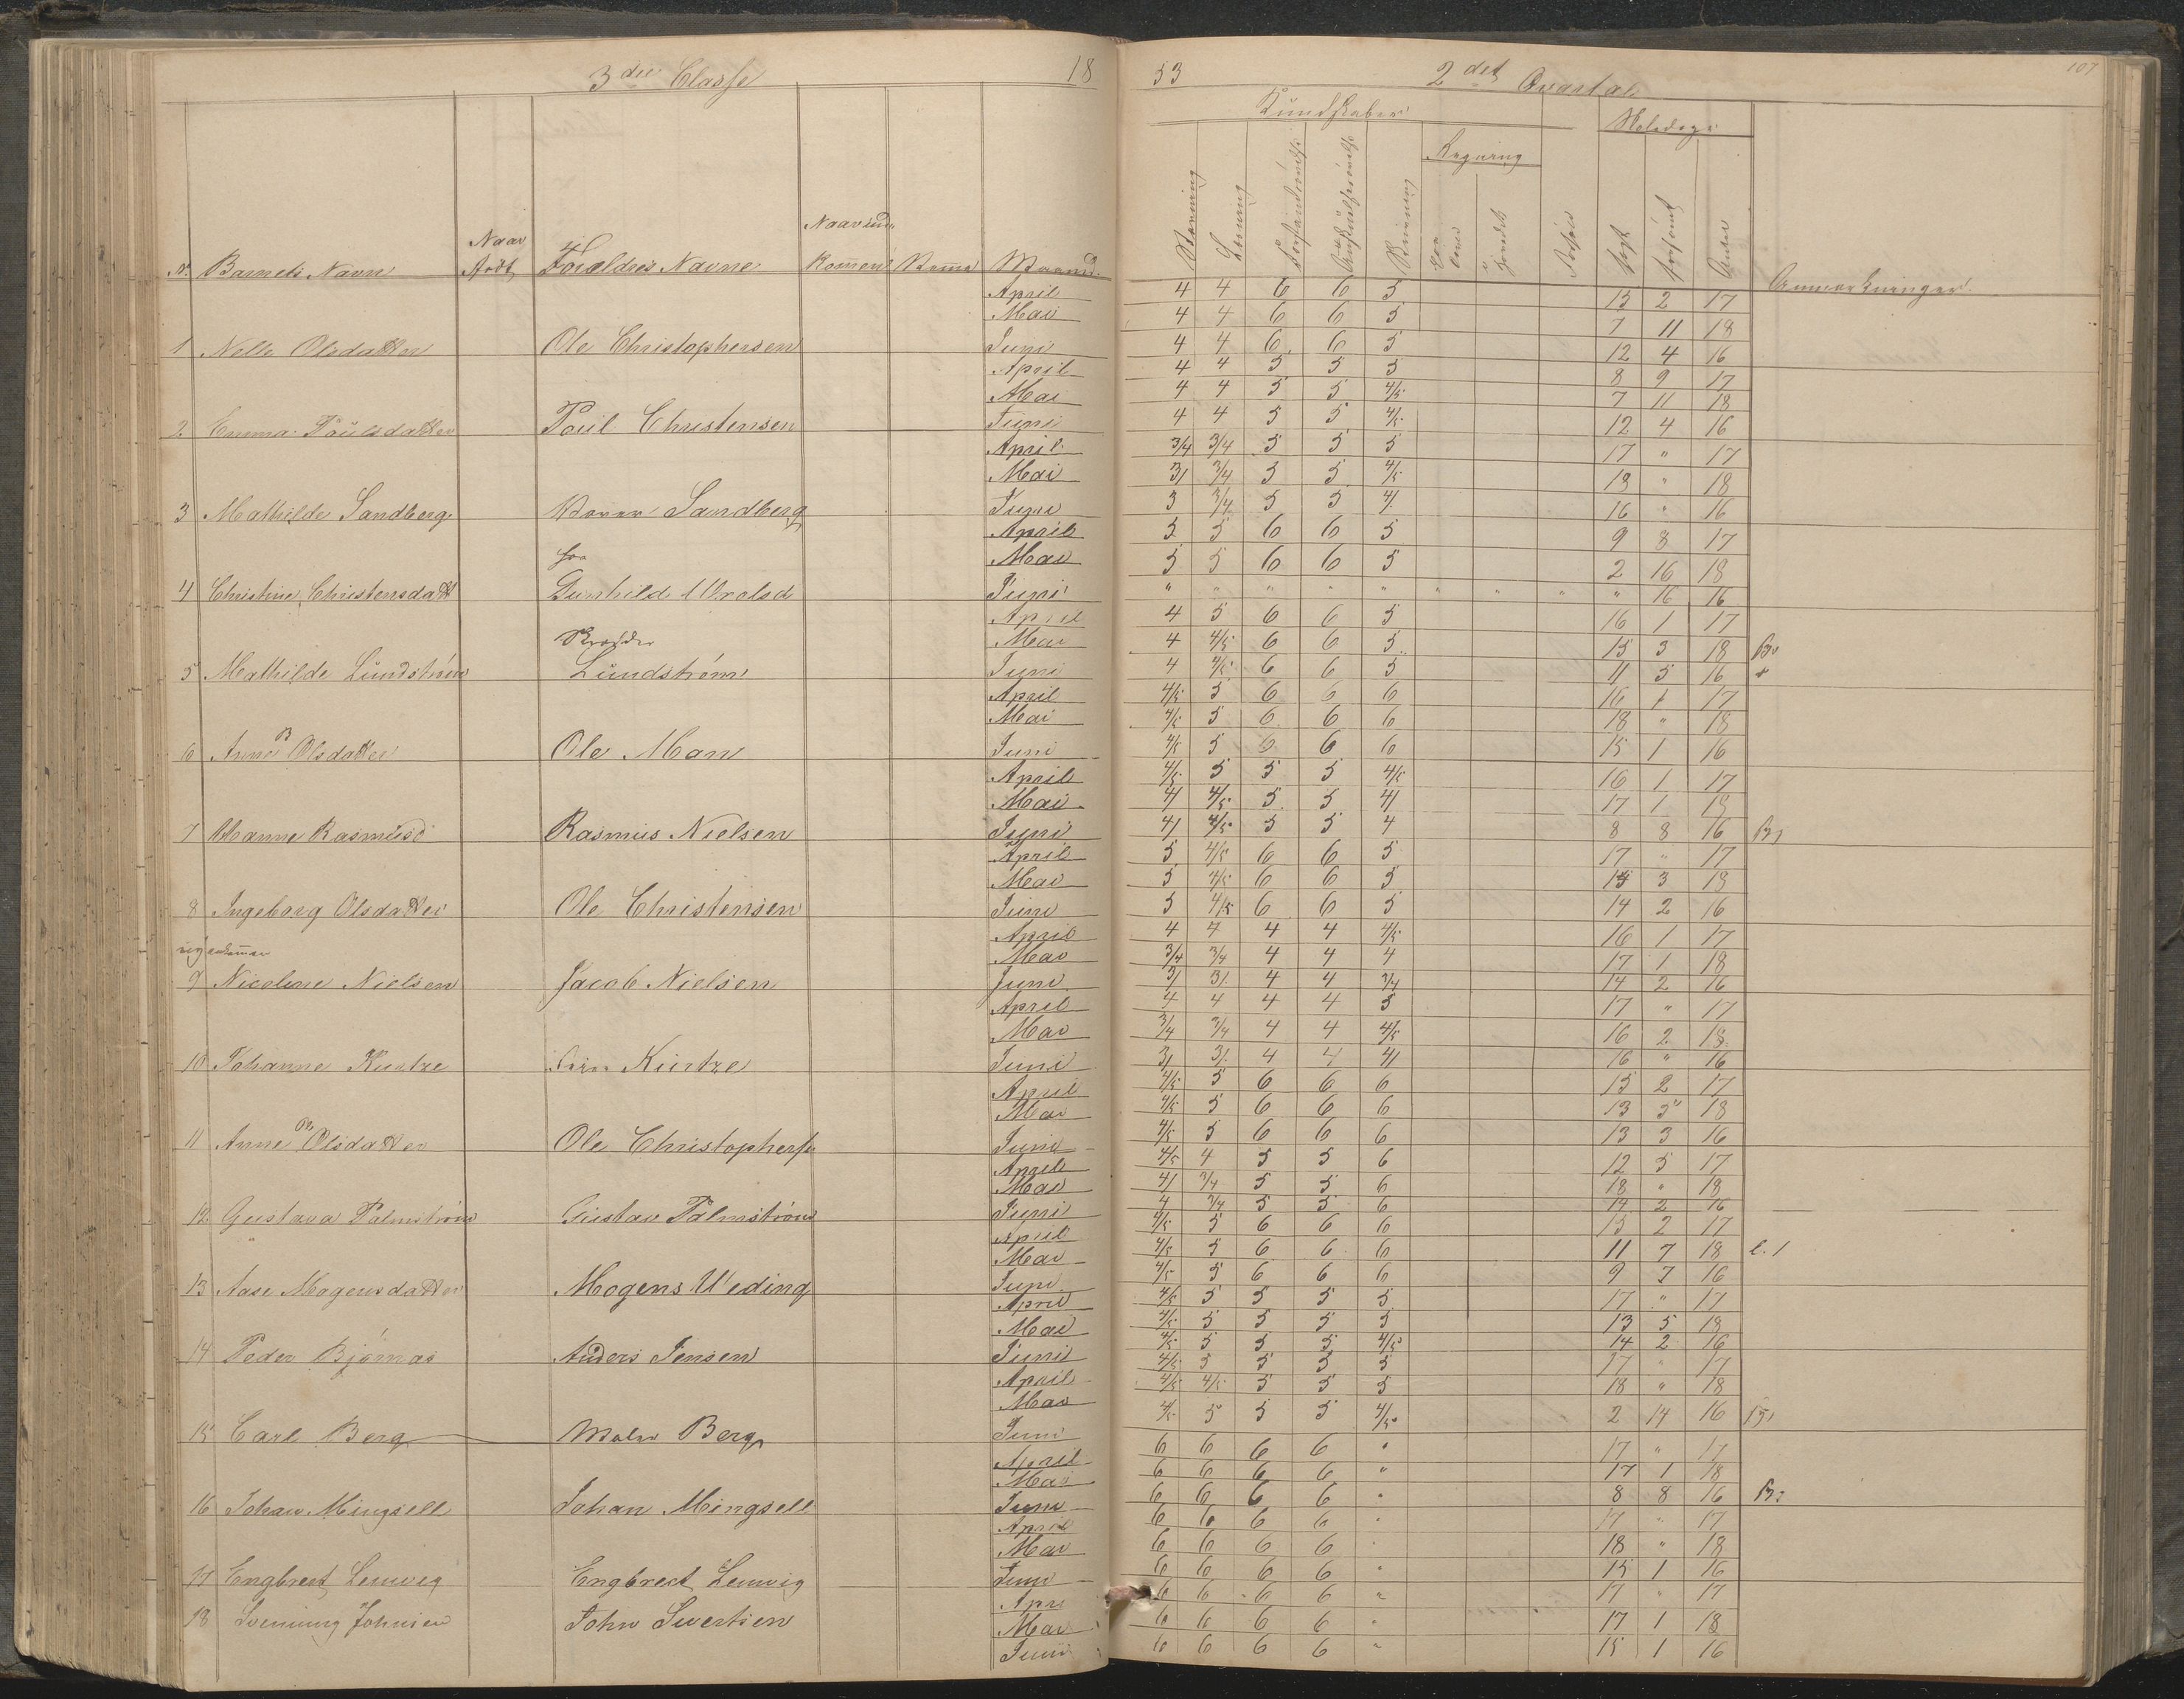 3die Classe 18
53 2det Qvartal 107
Kundskaber Heledage
Regning
Naar ind
Naar
N. Barnets Navn Født Forældres Navne Kommen Maaned
Stavning Læsning Skrivning søgt forsømt Anmærkninger
April 4 4 6 6 5 15 2 17
Mai 4 4 6 6 5 7 11 18
1 Nelle Olsdatter Ole Christophersen Juni 4 4 6 6 5 12 4 16
April 4 4 5 5 5 8 9 17
Mai 4 4 5 5 4/5 7 11 18
2 Emma Poulsdatter Poul Christensen Juni 4 4 5 5 4/5 12 4 16
April 3/4 3/4 5 5 5 17 " 17
Mai 3/ 3/4 5 5 4/5 18 " 18
3 Mathilde Sandberg Sandberg Juni 3 3/4 5 5 4/ 16 " 16
April 5 5 6 6 5 9 8 17
for Mai 5 5 6 6 5 2 16 18
4 Christine Christensdatt Gunhild Juni " " " " " " " " " 16 16
April 4 5 6 6 5 16 1 17
Mai 4 4/5 6 6 5 15 3 18
5 Mathilde Lundstrøm Lundstrøm Juni 4 4/5 6 6 5 11 5 16
April 4/5 5 6 6 6 16 1 17
Mai 4/5 5 6 6 6 18 " 18
6 Anne B Olsdatter Ole Man Juni 4/5 5 6 6 6 15 1 16
April 4/5 5 5 5 4/5 16 1 17
Mai 4/ 4/5 5 5 4/ 17 1 18
7 Hanne Rasmusd Rasmus Nielsen Juni 4/ 4/5 5 5 4 8 8 16
April 5 4/5 6 6 5 17 " 17
Mai 5 4/5 6 6 5 15 3 18
8 Ingeborg Olsdatter Ole Christensen Juni 5 4/5 6 6 5 14 2 16
April 4 4 4 4 4/5 16 1 17
Mai 3/4 3/4 4 4 4 17 1 18
9 Nicoline Nielsen Jacob Nielsen Juni 3/ 3/ 4 4 3/4 14 2 16
April 4 4 4 4 5 17 " 17
Mai 3/4 3/4 4 4 4/5 16 2 18
10 Johanne Kurtze Kurtze Juni 3/ 3/ 4 4 4/ 16 " 16
April 4/5 5 6 6 6 15 2 17
Mai 4/5 5 6 6 6 13 5 18
11 Anne Olsdatter Ole Christophers Juni 4/5 5 6 6 6 13 3 16
April 4/5 4 5 5 6 12 5 17
Mai 4/ 3/4 5 5 6 18 " 18
12 Gustava Palmstrøm Gustav Palmstrøm Juni 4 3/4 5 5 6 14 2 16
April 4/5 5 6 6 6 15 2 17
Mai 4/5 5 6 6 6 11 7 18
13 Aase Mogensdatter Mogens Ueding Juni 4/5 5 6 6 6 9 7 16
April 4/5 5 5 5 5 17 " 17
Mai 4/5 5 5 5 5 13 5 18
14 Peder Bjørnas Anders Jensen Juni 4/5 5 5 5 4/5 14 2 16
April 4/5 5 5 5 5 17 " 17
Mai 4/5 4/5 5 5 5 18 " 18
15 Carl Berg Maler Berg Juni 4/5 5 5 5 4/5 2 14 16
April 6 6 6 6 " 17 " 17
Mai 6 6 6 6 " 17 1 18
16 Johan Mingsell Johan Mingsell Juni 6 6 6 6 " 8 8 16
April 6 6 6 6 " 17 " 17
Mai 6 6 6 6 " 18 " 18
17 Engbrect Lenvig Engbrect Lenvig Juni 6 6 6 6 " 15 1 16
Apri 6 6 6 6 " 17 " 17
18 Svenning Johnsen John Swertsen Mai 6 6 6 6 " 17 1 18
Juni 6 6 6 6 " 15 1 16